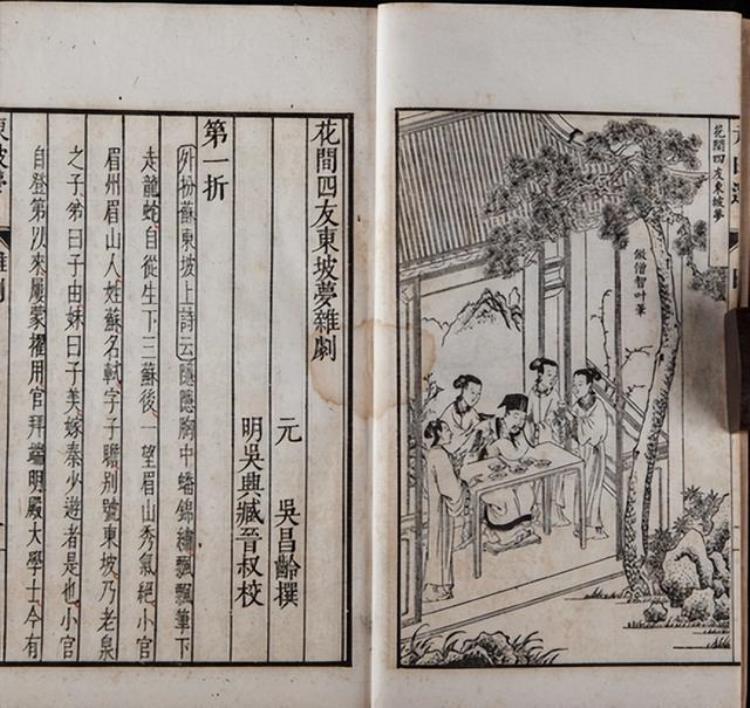 花間四友東坡夢
倣僧智叶筆
花間四友東坡夢雜劇
元 吳昌齡撰
明吳興臧晉叔校
第一折
外扮蘇東坡上詩云隱隱胸中蟠錦繡飄飄筆下
走龍蛇自從生下三蘇後一望眉山秀氣絕小官
眉州眉山人姓蘇名軾字子瞻別號東坡乃老泉
之子弟曰子由妹曰子美嫁秦少遊者是也小官
自登第以來屢蒙擢用官拜端明殿大學士今有
東坡夢 雜劇